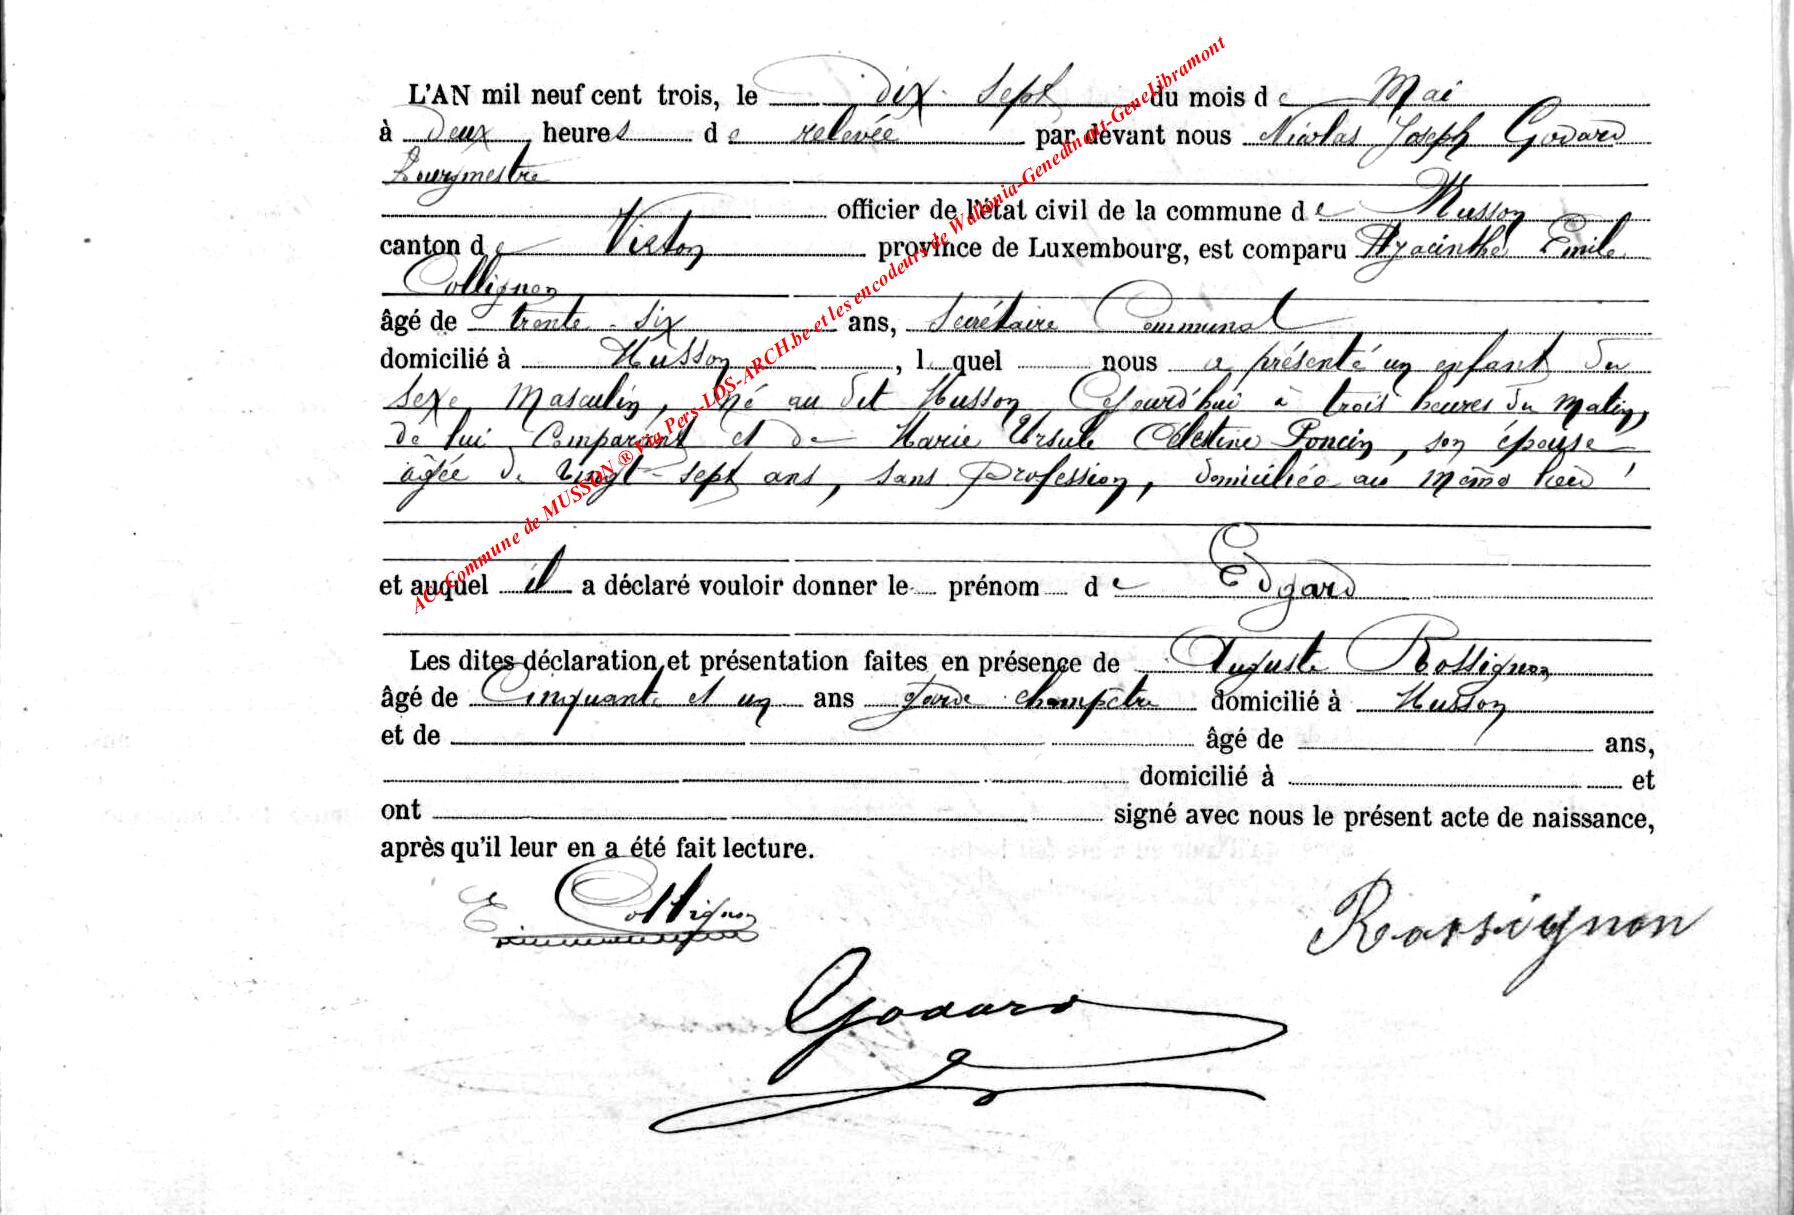 L'AN mil neuf cent trois, le dix-sept du mois de Mai
à deux heures de relevée par devant nous Nicolas Joseph Godard
Bourgmestre
officier de l'état civil de la commune de Musson
canton de Virton province de Luxembourg, est comparu Hyacinthe Emile
Collignon
âgé de trente-six ans, Secrétaire Communal
domicilié à Musson, lequel nous a présenté un enfant du
sexe Masculin, né au dit Musson Cejourd'hui à trois heures du matin,
de lui Comparant et de Marie Ursule Célestine Poncin, son épouse
âgée de vingt-sept ans, sans profession, domiciliée au même lieu
et auquel il a déclaré vouloir donner le prénom de Edgard
Les dites déclaration et présentation faites en présence de Auguste Rossignon
âgé de Cinquante et un ans garde champêtre domicilié à Musson
et de âgé de ans,
domicilié à et
ont signé avec nous le présent acte de naissance,
après qu'il leur en a été fait lecture.
E. Collignon
Rossignon
Godard
AC-Commune de MUSSON ® Via Pers-LDS-ARCH.be et les encodeurs de Wallonia-Genedinant-GeneLibramont